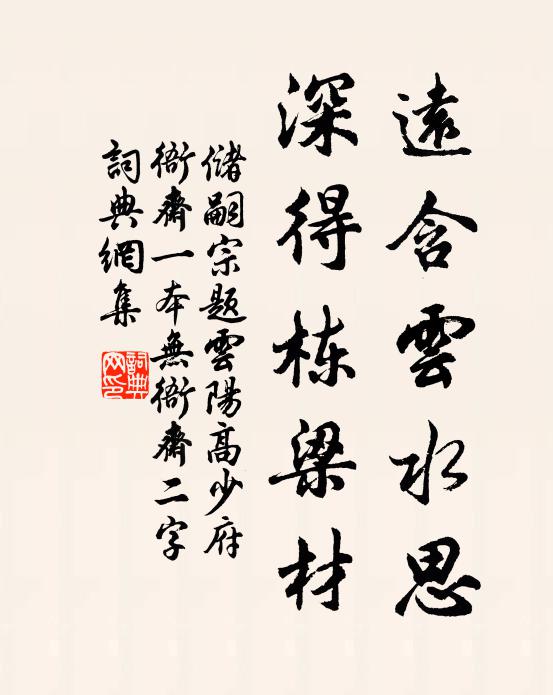 遠含雲水思
深得栋梁材
儲嗣宗題雲陽高少府
衙齋一本無衙齋二字
詞典網集
詞典
网印